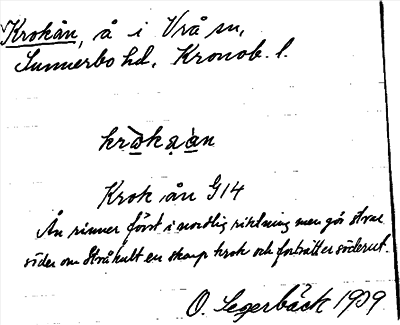 Krokån, å i Vrå sn,
Sunnerbo hd, Kronob. l.
Krok ån G14
Ån rinner först i nordlig riktning men gör strax
söder om Stråhult en skarp krok och fortsätter söderut.
O. Segerbäck 1909